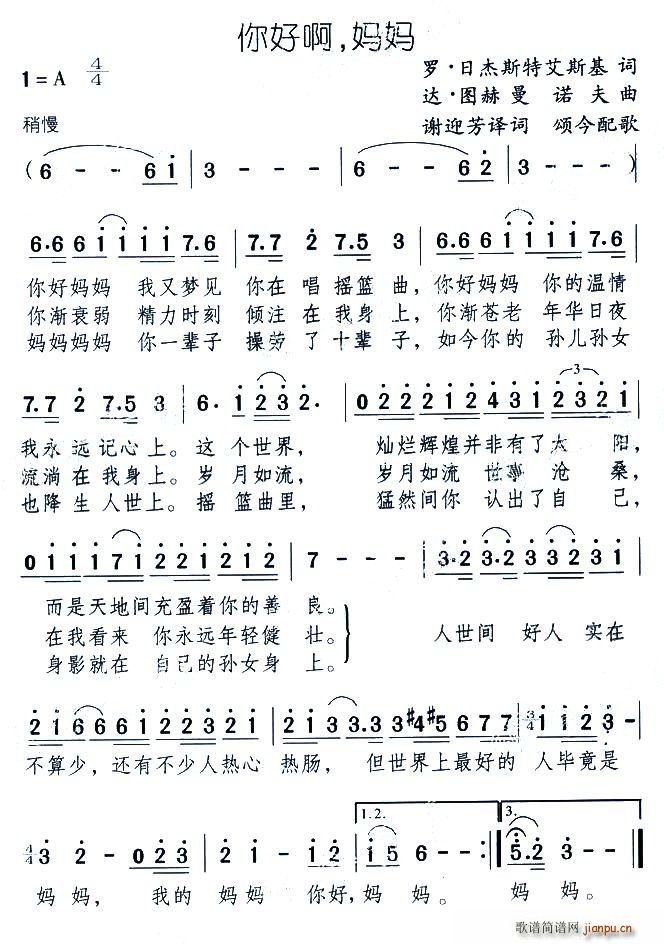 你好啊,妈妈
1=A 4/4
罗·日杰斯特艾斯基 词
达·图赫曼 诺夫曲
稍慢
谢迎芳译词 颂今配歌
(6 - - 6i 3 - - - 6 - - 62 3 - - -)
6.6 6i i i i 7.6 7.7 2 7.5 3 6.6 6i i i i 7.6
你好妈妈 我又梦见 你在唱摇篮曲,你好妈妈 你的温情
你渐衰弱 精力时刻 倾注在我身上,你渐苍老 年华日夜
妈妈妈妈 你一辈子 操劳了十辈子,如今你的 孙儿孙女
7.7 2 7.5 3 6. i 2 3 2. 0 2 2 2 1 2 4 3 1 2 3 2 1
3
我永远记心上。这个世界, 灿烂辉煌并非有了太阳,
流淌在我身上。岁月如流, 岁月如流 世事沧桑,
也降生人世上。摇篮曲里, 猛然间你 认出了自己,
0 1 1 1 7 1 2 2 1 2 1 2 7 - - - 3.2 3.2 3 2 3 1
而是天地间充盈着你的善良。
在我看来 你永远年轻健壮。
人世间 好人 实在
身影就在 自己的孙女身上。
2 1 6 6 6 1 2 2 2 1 2 2 1 3 3.3 3 #4 #5 6 7 7 3/4 1 1 2 3 -
不算少,还有不少人热心 热肠, 但世界上最好的 人毕竟是
1.2. 3.
4/4 3 2 - 0 2 3 2 1 - 1 2 i 5 6 - - :‖ 5.2 3 - -
妈妈, 我的 妈妈 你好,妈妈。 妈妈。
歌谱简谱网
jianpu.cn